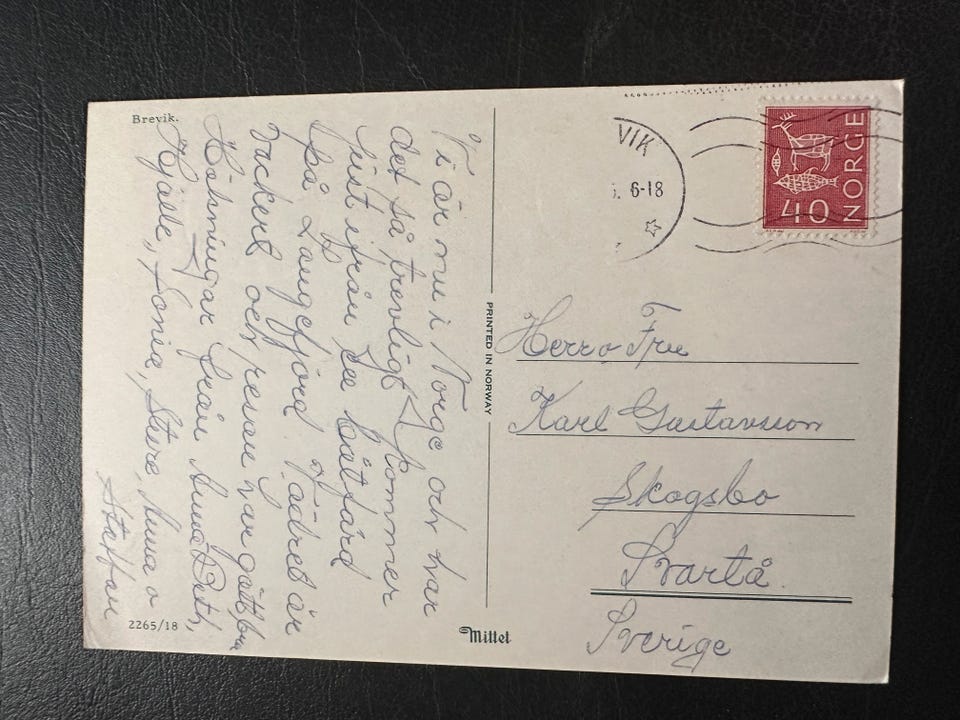 Brevik.
Vi är nu i Norge och har
det så trevligt. Kommer
just ifrån en båtfärd
på Langefjord. Vädret är
vackert och resan har gått bra
Hälsningar från Anna Beth,
Hjalle, Sonia, Sture, Anna o
Staffan
2265/18
PRINTED IN NORWAY
Mittet
VIK
6-18
NORGE
40
Herr o Fru
Karl Gustavsson
Skogsbo
Svartå
Sverige